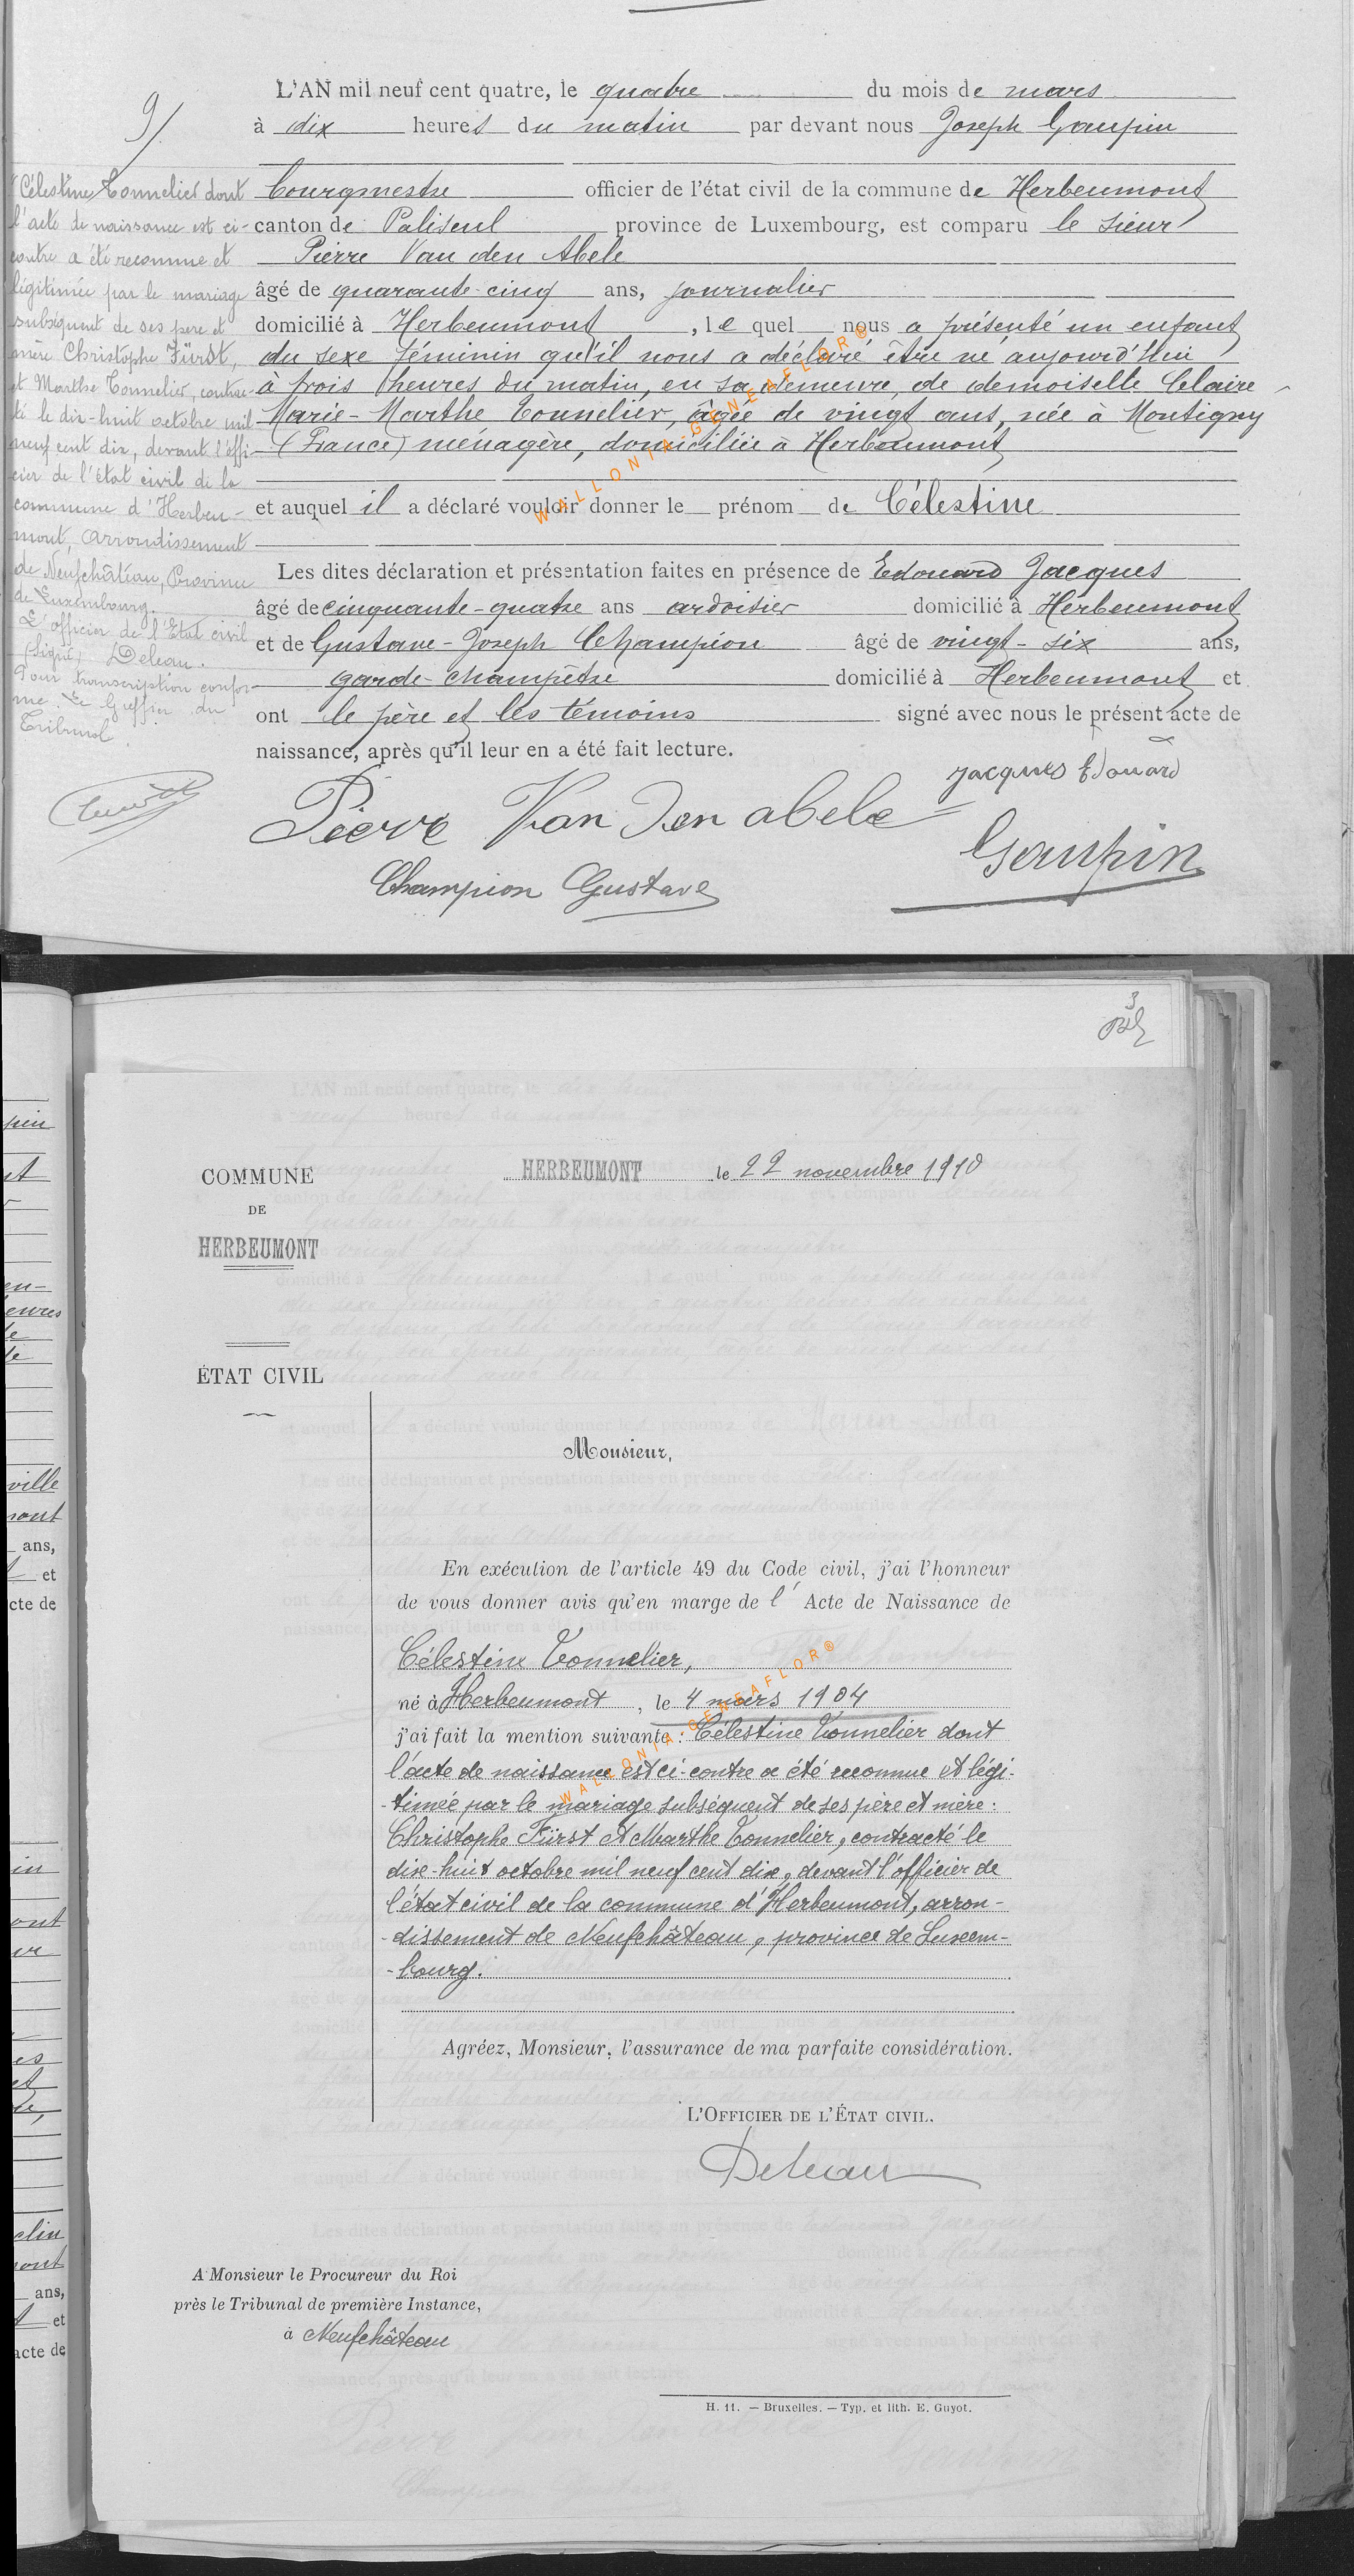 9/
L'AN mil neuf cent quatre, le quatre du mois de mars
à dix heures du matin par devant nous Joseph Gaupin
bourgmestre officier de l'état civil de la commune de Herbeumont
canton de Paliseul province de Luxembourg, est comparu le sieur
Pierre Van den Abele
âgé de quarante-cinq ans, journalier
domicilié à Herbeumont, le quel nous a présenté un enfant
du sexe féminin qu'il nous a déclaré être né aujourd'hui
à trois heures du matin, en sa demeure, de demoiselle Claire
Marie-Marthe Tonnelier, âgée de vingt ans, née à Montigny
(France) ménagère, domiciliée à Herbeumont
et auquel il a déclaré vouloir donner le prénom de Célestine
Les dites déclaration et présentation faites en présence de Edouard Jacques
âgé de cinquante-quatre ans ardoisier domicilié à Herbeumont
et de Gustave-Joseph Champion âgé de vingt-six ans,
garde-champêtre domicilié à Herbeumont et
ont le père et les témoins signé avec nous le présent acte de
naissance, après qu'il leur en a été fait lecture.
Célestine Tonnelier dont
l'acte de naissance est ci-
contre a été reconnue et
légitimée par le mariage
subséquent de ses père et
mère Christophe Fürst,
et Marthe Tonnelier, contrac-
té le dix-huit octobre mil
neuf cent dix, devant l'offi-
cier de l'état civil de la
commune d'Herbeu-
mont, arrondissement
de Neufchâteau, Province
de Luxembourg.
L'officier de l'Etat civil
(Signé) Deleau.
Pour transcription confor-
me. Le Greffier du
Tribunal.
Jacques Edouard
Pierre Van Den abele
Gaupin
Champion Gustave
WALLONIA-GENEAFLOR®
3
COMMUNE
DE
HERBEUMONT
HERBEUMONT le 22 novembre 1910
ÉTAT CIVIL
Monsieur,
En exécution de l'article 49 du Code civil, j'ai l'honneur
de vous donner avis qu'en marge de l' Acte de Naissance de
Célestine Tonnelier,
né à Herbeumont, le 4 mars 1904
j'ai fait la mention suivante: Célestine Tonnelier dont
l'acte de naissance est ci-contre a été reconnue et légi-
-timée par le mariage subséquent de ses père et mère:
Christophe Fürst et Marthe Tonnelier, contracté le
dix-huit octobre mil neuf cent dix, devant l'officier de
l'état civil de la commune d'Herbeumont, arron-
-dissement de Neufchâteau, province de Luxem-
-bourg.
WALLONIA-GENEAFLOR®
Agréez, Monsieur, l'assurance de ma parfaite considération.
L'OFFICIER DE L'ÉTAT CIVIL.
Deleau
A Monsieur le Procureur du Roi
près le Tribunal de première Instance,
à Neufchâteau
H. 11. — Bruxelles. — Typ. et lith. E. Guyot.